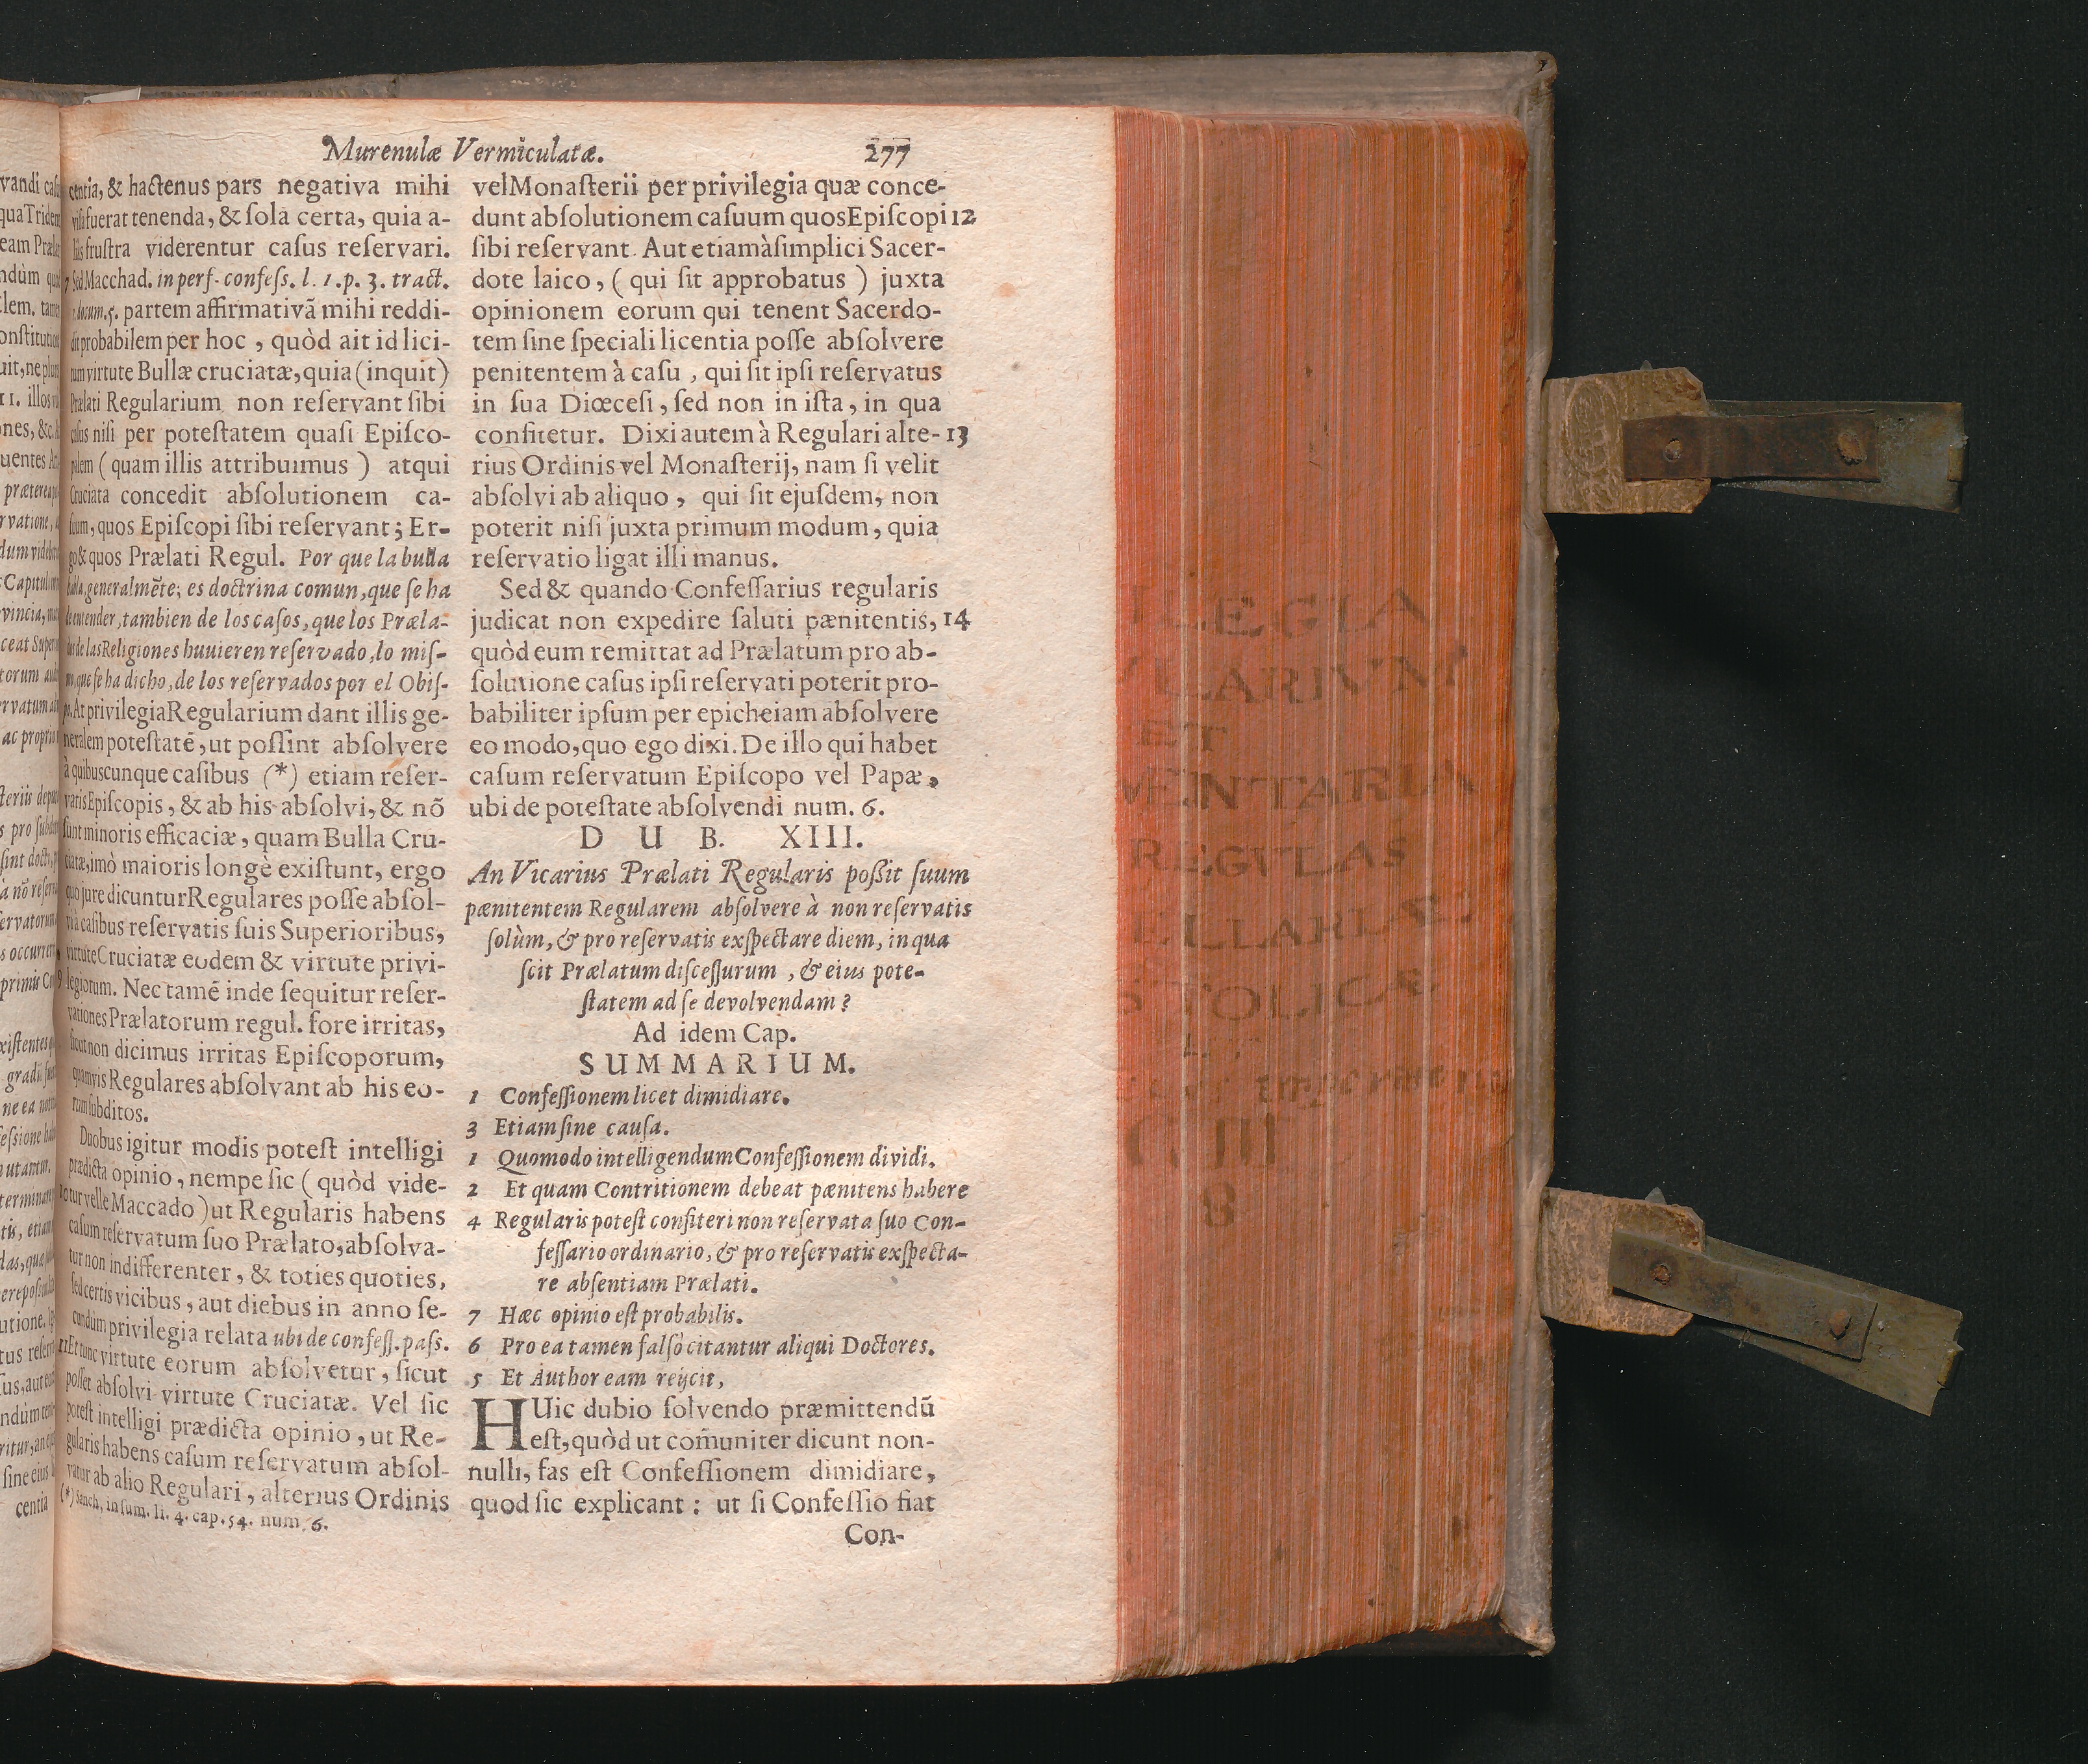 Murenulæ Vermiculatæ. 277
centia, & hactenus pars negativa mihi
visa fuerat tenenda, & sola certa, quia a-
liis frustra viderentur casus reservari.
7 Sed Macchad. in perf. confess. l. 1. p. 3. tract.
docum. 5. partem affirmativã mihi reddi-
dit probabilem per hoc, quòd ait id lici-
tum virtute Bullæ cruciatæ, quia (inquit)
Prælati Regularium non reservant sibi
casus nisi per potestatem quasi Episco-
palem (quam illis attribuimus) atqui
Cruciata concedit absolutionem ca-
suum, quos Episcopi sibi reservant; Er-
go & quos Prælati Regul. Por que la bulla
habla generalmẽte; es doctrina comun, que se ha
de entender, tambien de los casos, que los Præla-
dos de las Religiones huuieren reservado, lo mis-
mo, que se ha dicho, de los reservados por el Obis-
po. At privilegia Regularium dant illis ge-
neralem potestatẽ, ut possint absolvere
à quibuscunque casibus (*) etiam reser-
vatis Episcopis, & ab his absolvi, & nõ
sunt minoris efficaciæ, quam Bulla Cru-
ciatæ, imò maioris longè existunt, ergo
quo jure dicuntur Regulares posse absol-
vi à casibus reservatis suis Superioribus,
virtute Cruciatæ eodem & virtute privi-
9 legiorum. Nec tamẽ inde sequitur reser-
vationes Prælatorum regul. fore irritas,
sicut non dicimus irritas Episcoporum,
quamvis Regulares absolvant ab his eo-
rum subditos.
Duobus igitur modis potest intelligi
prædicta opinio, nempe sic (quòd vide-
10 tur velle Maccado) ut Regularis habens
casum reservatum suo Prælato, absolva-
tur non indifferenter, & toties quoties,
sed certis vicibus, aut diebus in anno se-
cundùm privilegia relata ubi de confess. pass.
11 Et tunc virtute eorum absolvetur, sicut
posset absolvi virtute Cruciatæ. Vel sic
potest intelligi prædicta opinio, ut Re-
gularis habens casum reservatum absol-
vatur ab alio Regulari, alterius Ordinis
(*) Sanch. in sum. li. 4. cap. 54. num. 6.
vel Monasterii per privilegia quæ conce-
dunt absolutionem casuum quos Episcopi 12
sibi reservant. Aut etiam à simplici Sacer-
dote laico, (qui sit approbatus) juxta
opinionem eorum qui tenent Sacerdo-
tem sine speciali licentia posse absolvere
penitentem à casu, qui sit ipsi reservatus
in sua Diœcesi, sed non in ista, in qua
confitetur. Dixi autem à Regulari alte- 13
rius Ordinis vel Monasterij, nam si velit
absolvi ab aliquo, qui sit ejusdem, non
poterit nisi juxta primum modum, quia
reservatio ligat illi manus.
Sed & quando Confessarius regularis
judicat non expedire saluti pænitentis, 14
quòd eum remittat ad Prælatum pro ab-
solutione casus ipsi reservati poterit pro-
babiliter ipsum per epicheiam absolvere
eo modo, quo ego dixi. De illo qui habet
casum reservatum Episcopo vel Papæ,
ubi de potestate absolvendi num. 6.
D U B. XIII.
An Vicarius Prælati Regularis possit suum
pænitentem Regularem absolvere à non reservatis
solùm, & pro reservatis exspectare diem, in qua
scit Prælatum discessurum, & eius pote-
statem ad se devolvendam?
Ad idem Cap.
SUMMARIUM.
1 Confessionem licet dimidiare.
3 Etiam sine causa.
1 Quomodo intelligendum Confessionem dividi.
2 Et quam Contritionem debeat pænitens habere
4 Regularis potest confiteri non reservata suo Con-
fessario ordinario, & pro reservatis exspecta-
re absentiam Prælati.
7 Hæc opinio est probabilis.
6 Pro ea tamen falsò citantur aliqui Doctores.
5 Et Author eam reijcit,
HUic dubio solvendo præmittendũ
est, quòd ut com̃uniter dicunt non-
nulli, fas est Confessionem dimidiare,
quod sic explicant: ut si Confessio fiat
Con-
LEGIA
LARIVM
ET
MENTARIA
REGVLAS
ELLARIÆ
STOLICÆ
III
8